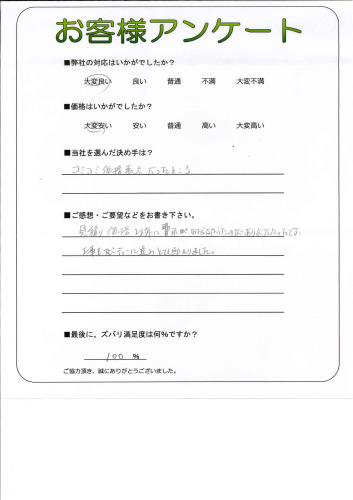 お客様アンケート
■弊社の対応はいかがでしたか?
大変良い 良い 普通 不満 大変不満
■価格はいかがでしたか?
大変安い 安い 普通 高い 大変高い
■当社を選んだ決め手は?
コミコミ価格表示だったところ
■ご感想・ご要望などをお書き下さい。
見積り価格以外に費用がかからなかったのでありがたかったです。
工事もスピーディーに進みとても助かりました。
■最後に、ズバリ満足度は何%ですか?
100 %
ご協力頂き、誠にありがとうございました。